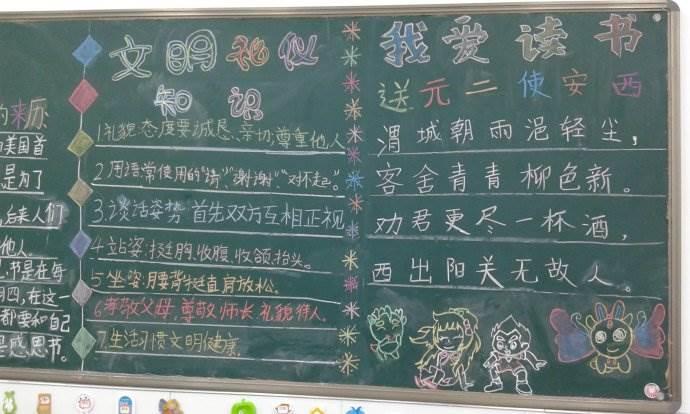 的来历
美国首
是为了
后来人们
他人。
是在每
月四,在这一
都要和自己
是感恩节。
文明礼仪
知识
1.礼貌:态度要诚恳、亲切;尊重他人
2.用语:常使用的“请”“谢谢”“对不起”。
3.谈话姿势:首先双方互相正视
4.站姿:挺胸、收腹、收颌、抬头。
5.坐姿:腰背挺直,肩放松。
6.孝敬父母,尊敬师长,礼貌待人。
7.生活习惯文明健康。
我爱读书
送元二使安西
渭城朝雨浥轻尘,
客舍青青柳色新。
劝君更尽一杯酒,
西出阳关无故人。